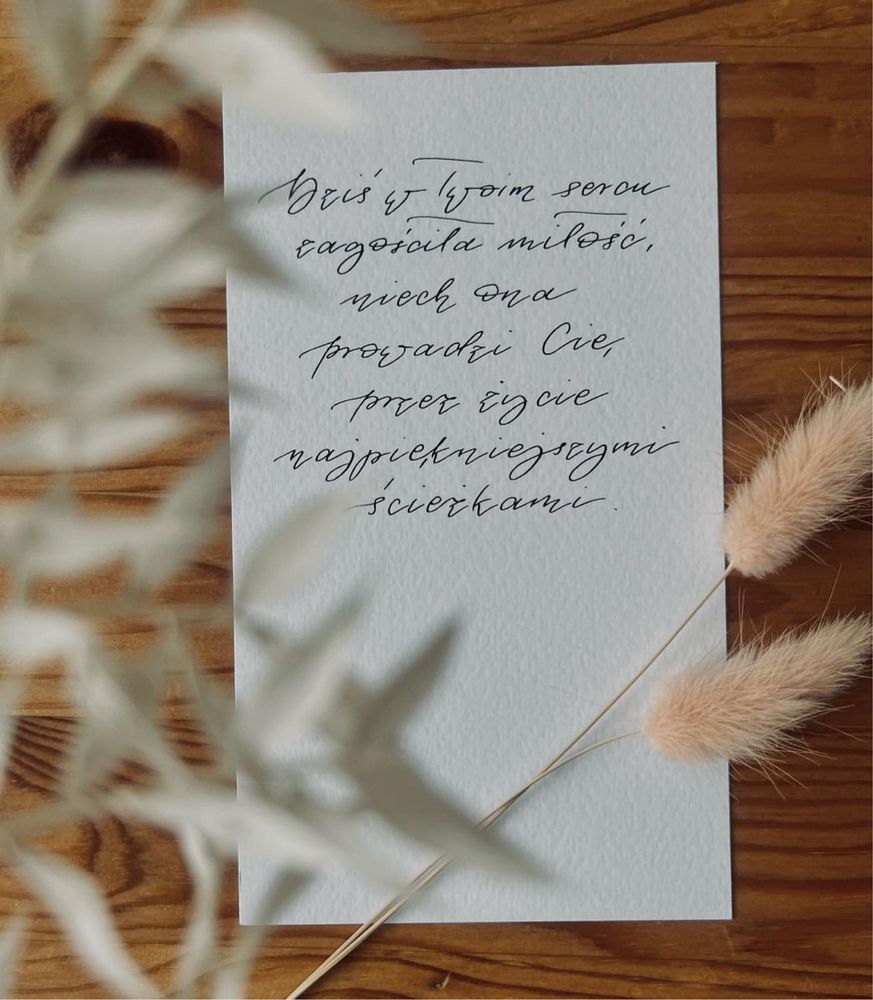 Dziś w Twoim sercu
zagościła miłość,
niech ona
prowadzi Cię,
przez życie
najpiękniejszymi
ścieżkami.